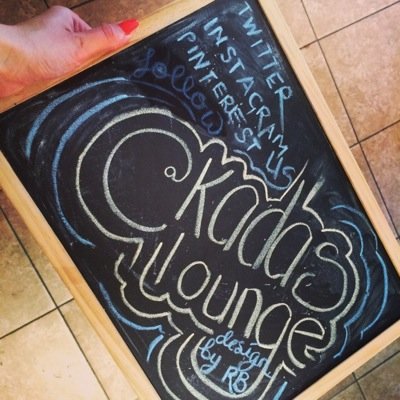 follow
TWITTER
INSTAGRAM
PINTEREST US
Ckadas
Lounge
design
by RB